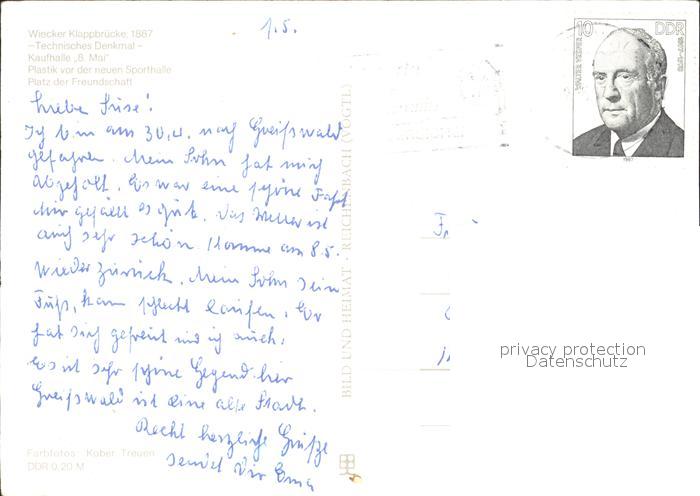 Wiecker Klappbrücke, 1887
-Technisches Denkmal-
Kaufhalle „8. Mai"
Plastik vor der neuen Sporthalle
Platz der Freundschaft
1.5.
Liebe Suse!
Ich bin am 30.4. nach Greifswald
gefahren. Mein Sohn hat mich
abgeholt. Es war eine schöne Fahrt
Mir gefällt es gut. Das Wetter ist
auch sehr schön. Komme am 8.5.
wieder zurück. Mein Sohn sein
Fuß, kann schlecht laufen. Er
hat sich gefreut und ich auch.
Es ist sehr schöne Gegend hier
Greifswald ist eine alte Stadt.
Recht herzliche Grüße
sendet Dir
Farbfotos: Kober, Treuen
DDR 0,20 M
BILD UND HEIMAT REICHENBACH (VOGTL)
10 DDR
1987
privacy protection
Datenschutz